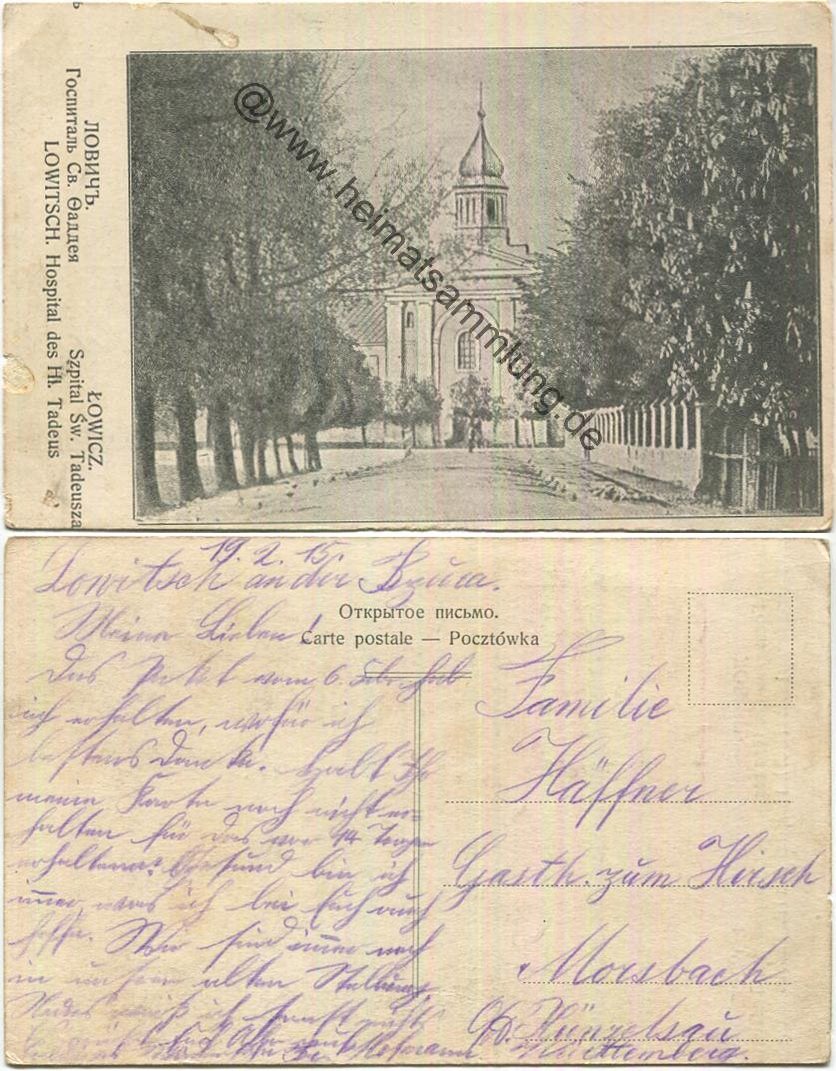 ЛОВИЧЪ.
Госпиталь Св. Ѳаддея
ŁOWICZ.
Szpital Św. Tadeusza
LOWITSCH. Hospital des Hl. Tadeus
@www.heimatsammlung.de
19. 2. 15.
Lowitsch an der Bzura.
Открытое письмо.
Carte postale — Pocztówka
Meine Lieben!
Das Paket vom 6. Febr. hab
ich erhalten, wofür ich
bestens danke. Habt Ihr
meine Karte noch nicht er=
halten für das vor 14 Tagen
erhaltene? Gesund bin ich
immer, was ich bei Euch auch
hoffe. Wir sind immer noch
in unserer alten Stellung,
ich sonst nicht
Familie
Häffner
Gasth. zum Hirsch
Morsbach
O/A. Künzelsau
Württemberg.